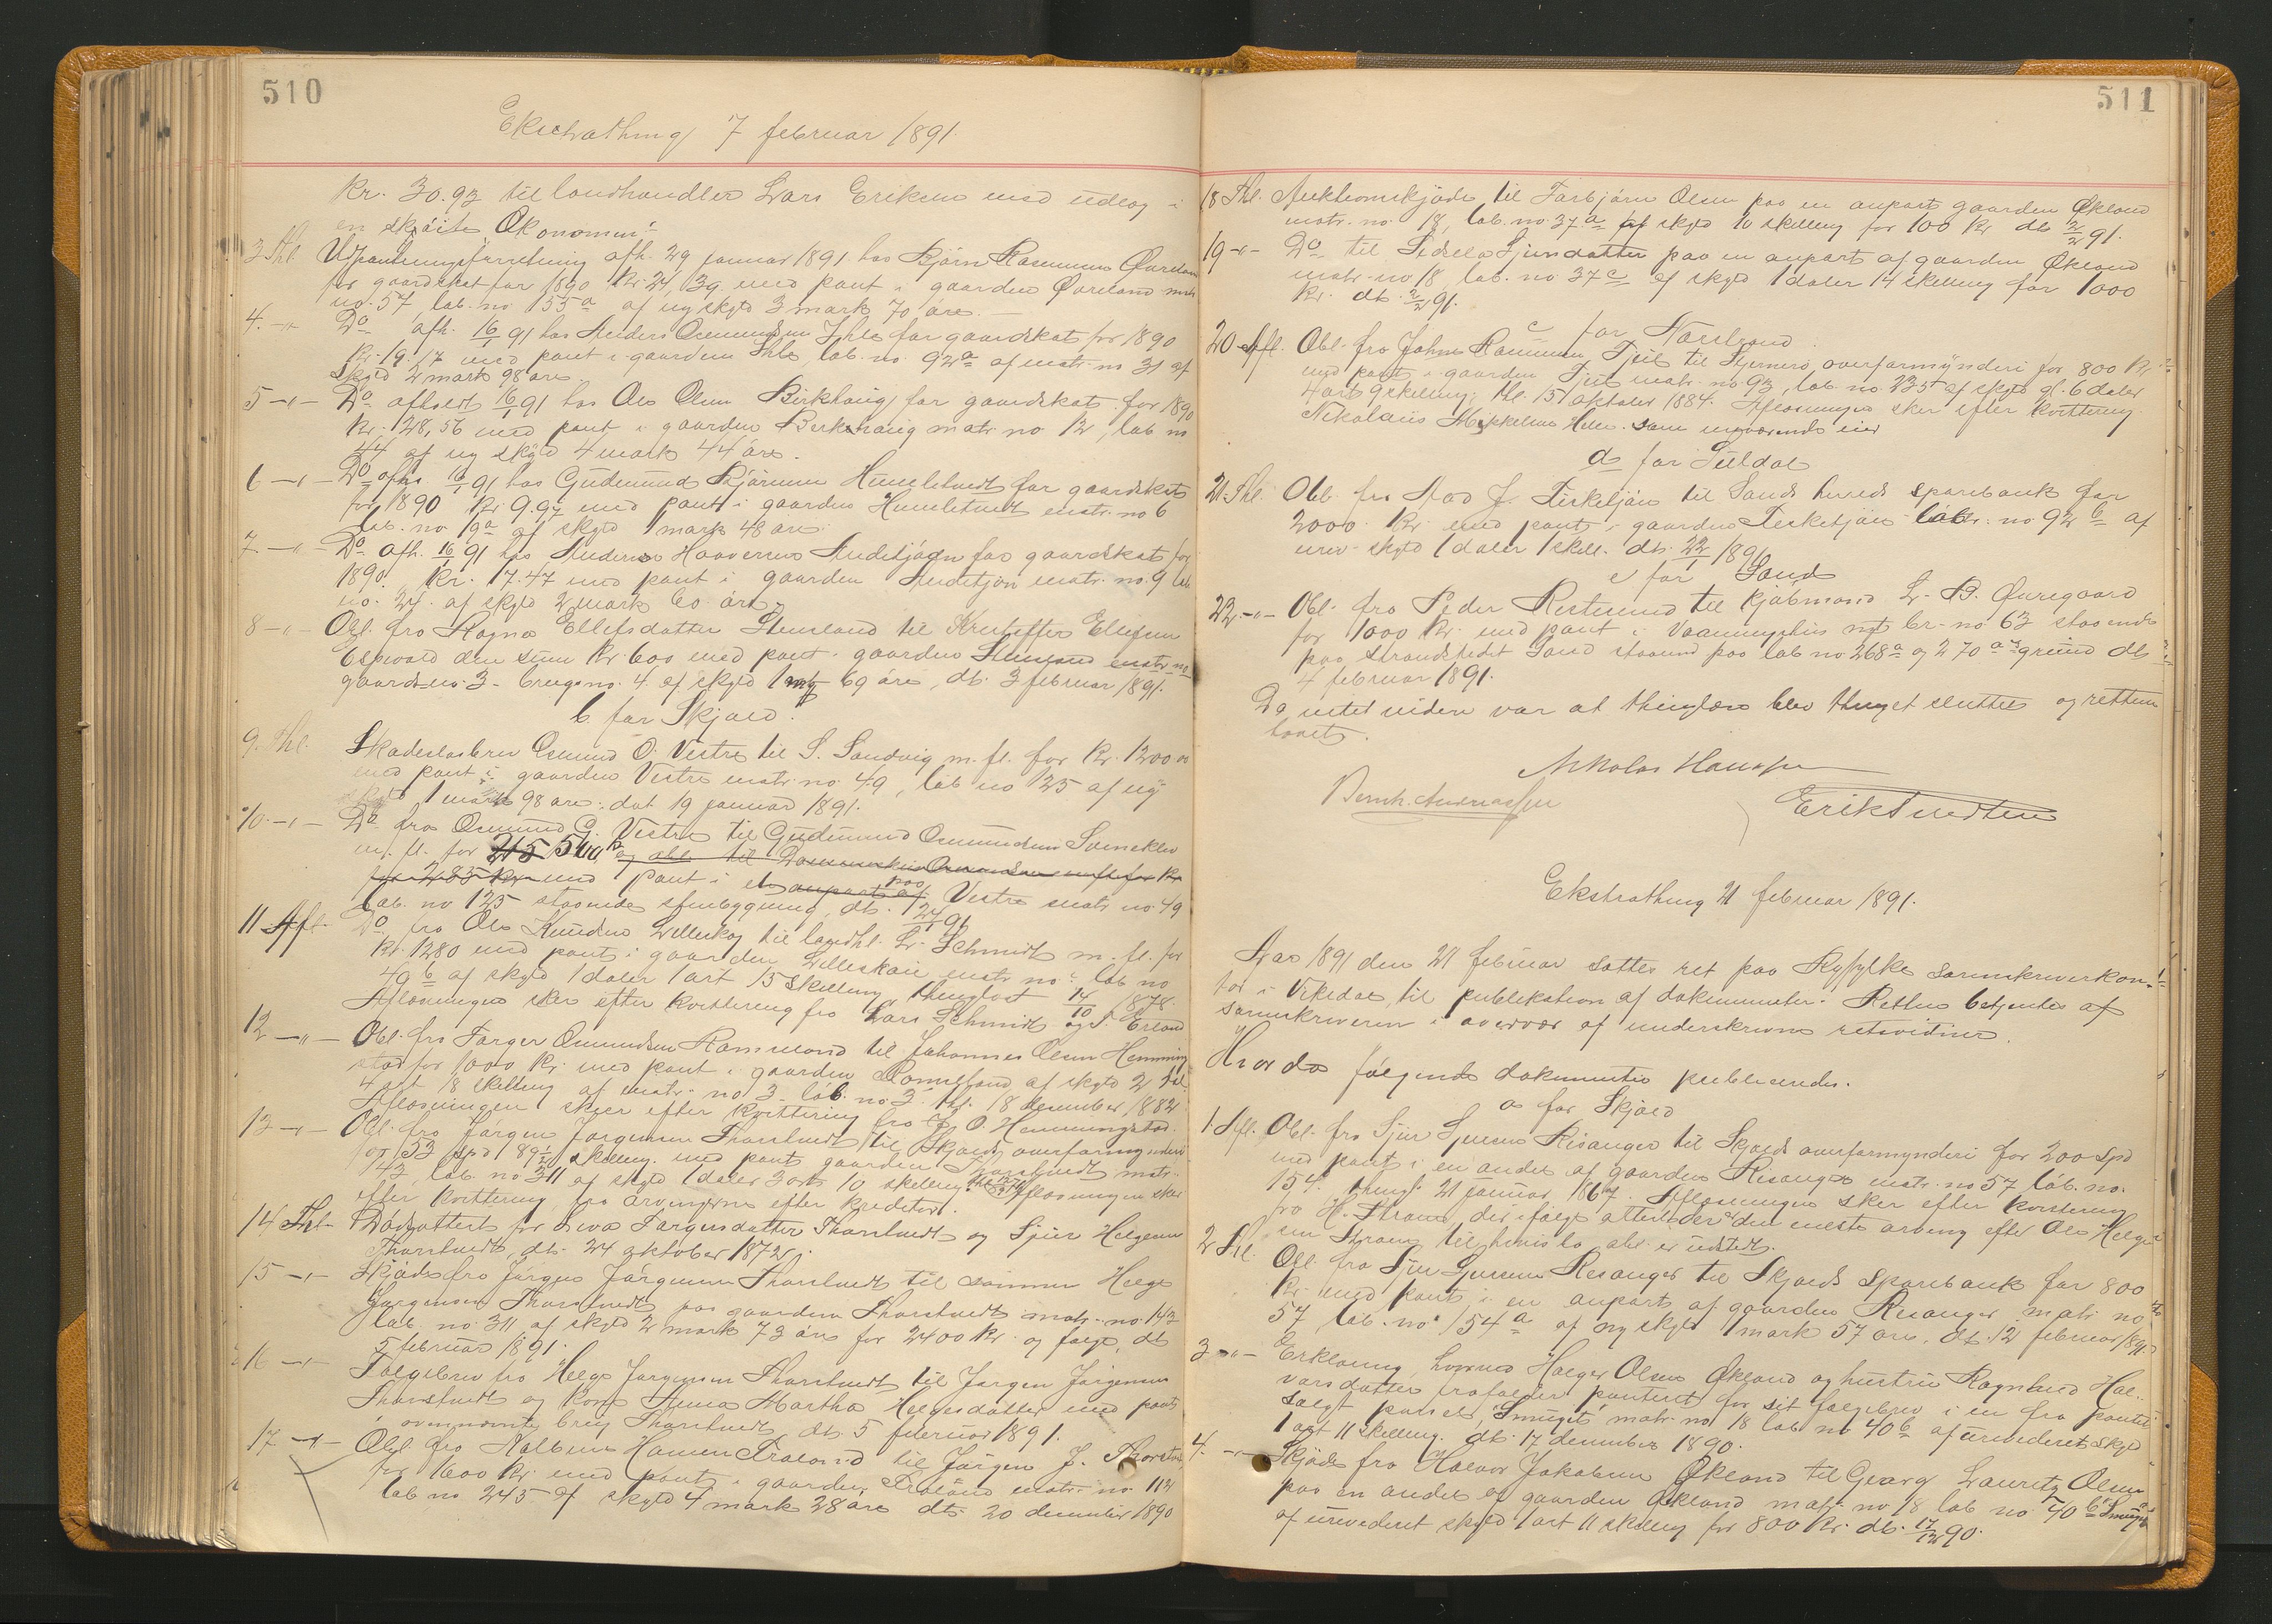 510
Ekstrathing 7 februar 1891.
Kr. 30.92 til landhandler Lars Eriksen med udlæg i
en skøite Økonomien
3 Thl. Udpantningsforretning afh. 29 januar 1891 hos Bjørn Rasmussen
for gaardskat for 1890 Kr. 24,39 med pant i gaarden matr.
no. 57, løb. no 155a af ny skyld 3 mark 70 øre.
4. -"- Do afh. 16/1 91 hos Anders Osmundsen Ihle for gaardskat for 1890
Kr. 19.17 med pant i gaarden Ihle løb. no. 92a af matr. no 31 af
Skyld 2 mark 98 øre
5 -"- Do afholdt 16/1 91 hos Ole Olsen Birkhaug for gaardskat for 1890
Kr. 128,56 med pant i gaarden Berkehaug matr no 12, løb no
44 af ny skyld 4 mark 44 øre.
6 -"- Do afh. 16/1 91 hos Gudmund Bjørnsen Humletvedt for gaardskat
for 1890 Kr 9.97 med pant i gaarden Humletvedt matr. no 6
løb. no 19a af skyld 1 mark 48 øre.
7 -"- Do afh. 16/1 91 hos Anders Haaversen for gaardskat for
1890 Kr. 17.47 med pant i gaarden matr. no. 9 løb.
no. 24. af skyld 2 mark 60 øre.
8 -"- Obl. fra Ragna Ellefsdatter Stensland til Kristoffer Ellefsen
Espevold den sum Kr. 600 med pant i gaarden Stensland matr no
gaards no. 3 - brugs no. 4. af skyld 1 mk 69 øre, dt. 3 februar 1891.
b. for Skjold.
9. Thl. Skadesløsbrev Osmund O. Vestre til S. Sandvig m. fl. for Kr. 1200 00
med pant i gaarden Vestre matr. no. 49, løb no 125 af ny
skyld 1 mark 98 øre. dat 19 januar 1891.
10. -"- Do fra Osmund G. Vestre til Gudmund Osmundsen
m. fl. for 215 500 kr og obl. til Osmundsen m fl for Kr
for 285 Kr med pant i en anpart af paa Vestre matr no. 49
løb. no 125 staaende bygning, dt. 24/1 91
11 Afl. Do fra Ole Knudsen Lilleskog til landhl. L. Schmidt m. fl. for
Kr. 1280 med pant i gaarden Lilleskog matr no " løb no
49b af skyld 1 daler 1 ort 15 skilling thinglæst 14/10 1878.
Afløsningen sker efter kvittering fra Lars Schmidt og S.
12 -"- Obl. fra Torger Osmundsen Ramsland til Johannes Olsen Hemming
stad for 1000 Kr med pant i gaarden Ramsland af skyld 2 dal.
4 ort 18 skilling af matr. no 3 - løb. no 3. thl. 18 december 1882
Afløsningen skeer efter kvittering fra J. O. Hemmingstad.
13 -"- Obl. fra Jørgen Jørgensen Thorstvedt til Skjold overformynderi
for 53 spd 89 1/2 skilling med pant gaarden Thorstvedt matr.
143, løb. no 311 af skyld 1 daler 3 ort 10 skilling. Afløsningen sker
efter kvittering fra arvingerne efter kreditor.
14 Thl. Dødsattest for Siva Torgersdatter Thorstvedt og Sjur Helgesen
Thorstvedt, dt. 24 oktober 1872.
15 -"- Skjøde fra Jørgen Jørgensen Thorstvedt til sønnen Helge
Jørgensen Thorstvedt paa gaarden Thorstvedt matr. no. 143
løb no. 311 af skyld 2 mark 73 øre for 2400 Kr. og følge, dt
5 februar 1891.
16 -"- Følgebrev fra Helge Jørgensen Thorstvedt til Jørgen Jørgensen
Thorstvedt og Kone Anna Martha Helgesdatter med pant
i ovennævnte brug Thorstvedt, dt. 5 februar 1891.
17 -"- Obl. fra Hansen til Jørgen J. Thorstvedt
for 1600 Kr. med pant i gaarden matr. no. 112
løb no 245 af skyld 4 mark 28 øre dt. 20 december 1890
511
18 Thl. Auktionsskjøde til Torbjørn Olsen paa en anpart gaarden Økland
matr. no. 18, løb. no 37a af skyld 10 skilling for 100 Kr. dt. 2/2 91.
19 -"- Do til Sidsela Sjursdatter paa en anpart af gaarden Økland
matr. no 18, løb. no 37c af skyld 1 daler 14 skilling for 1000
Kr. dt. 2/2 91.
c for Nærstrand.
20 Afl. Obl. fra Johan Rasmussen Tjul til Tysvær overformynderi for 800 Kr.
med pant i gaarden Tjul matr. no. 92, løb. no 235 af skyld gl. 6 daler
4 ort 9 skilling, thl. 15 oktober 1884. Afløsningen sker efter kvittering
Nikolaus Mikkelsen som nuværende eier
d for Suldal
21. Thl. Obl. fra J. Fiskekjøn til Sands herreds sparebank for
2000 Kr. med pant i gaarden Fiskekjøn løb. no 92b af
urev. skyld 1 daler 1 skill. dt. 22/1 1891.
e for Sand
22. -"- Obl. fra Peder til kjøbmand L. B. Øvregaard
for 1000 Kr. med pant i Vaaningshus br. no 63 staaende
paa strandstedet Sand staaende paa løb no 268a og 270a's grund dt
4 februar 1891.
Da intet videre var at thinglæse blev thinget sluttet og retten
hævet.
Nikolas Hanssen
Bernh. Andreassen
Erik
Ekstrathing 21 februar 1891.
Aar 1891 den 21 februar sattes ret paa Ryfylke sorenskriverkon-
tor i Vikedal til publikation af dokumenter. Retten betjentes af
sorenskriveren i overvær af underskrevne retsvidner.
Hvorda følgende dokumenter publiceredes.
a for Skjold
1. Afl. Obl. fra Sjur Sjursen Risanger til Skjolds overformynderi for 200 spd
med pant i en andel af gaarden Risanger matr. no 57 løb. no.
154. thingl. 21 januar 1867. Afløsningen sker efter kvittering
fra H. der ifølge attest er den eneste arving efter Ole Helge
sen til hvis obl. er udstedt.
2 Thl. Obl. fra Sjur Sjursen Risanger til Skjolds Sparebank for 800
Kr. med pant i en anpart af gaarden Risanger matr no
57 løb. no. 154a af ny skyld 1 mark 57 øre, dt. 12 februar 1891.
3 -"- Erklæring hvorved Holger Olsen Økland og hustru Ragnhild Hal-
vorsdatter frafalder panteret for sit følgebrev i en fra pantet
solgt parsel, Smuget matr no 18 løb no 40b af urevideret skyld
1 ort 11 skilling. dt. 17 december 1890.
4. -"- Skjøde fra Halvor Jakobsen Økland til Georg Lauritz Olsen
paa en andel af gaarden Økland matr no 18 løb no 40b Smuget
af urevideret skyld 1 ort 11 skilling for 800 Kr. dt. 17/12 90.